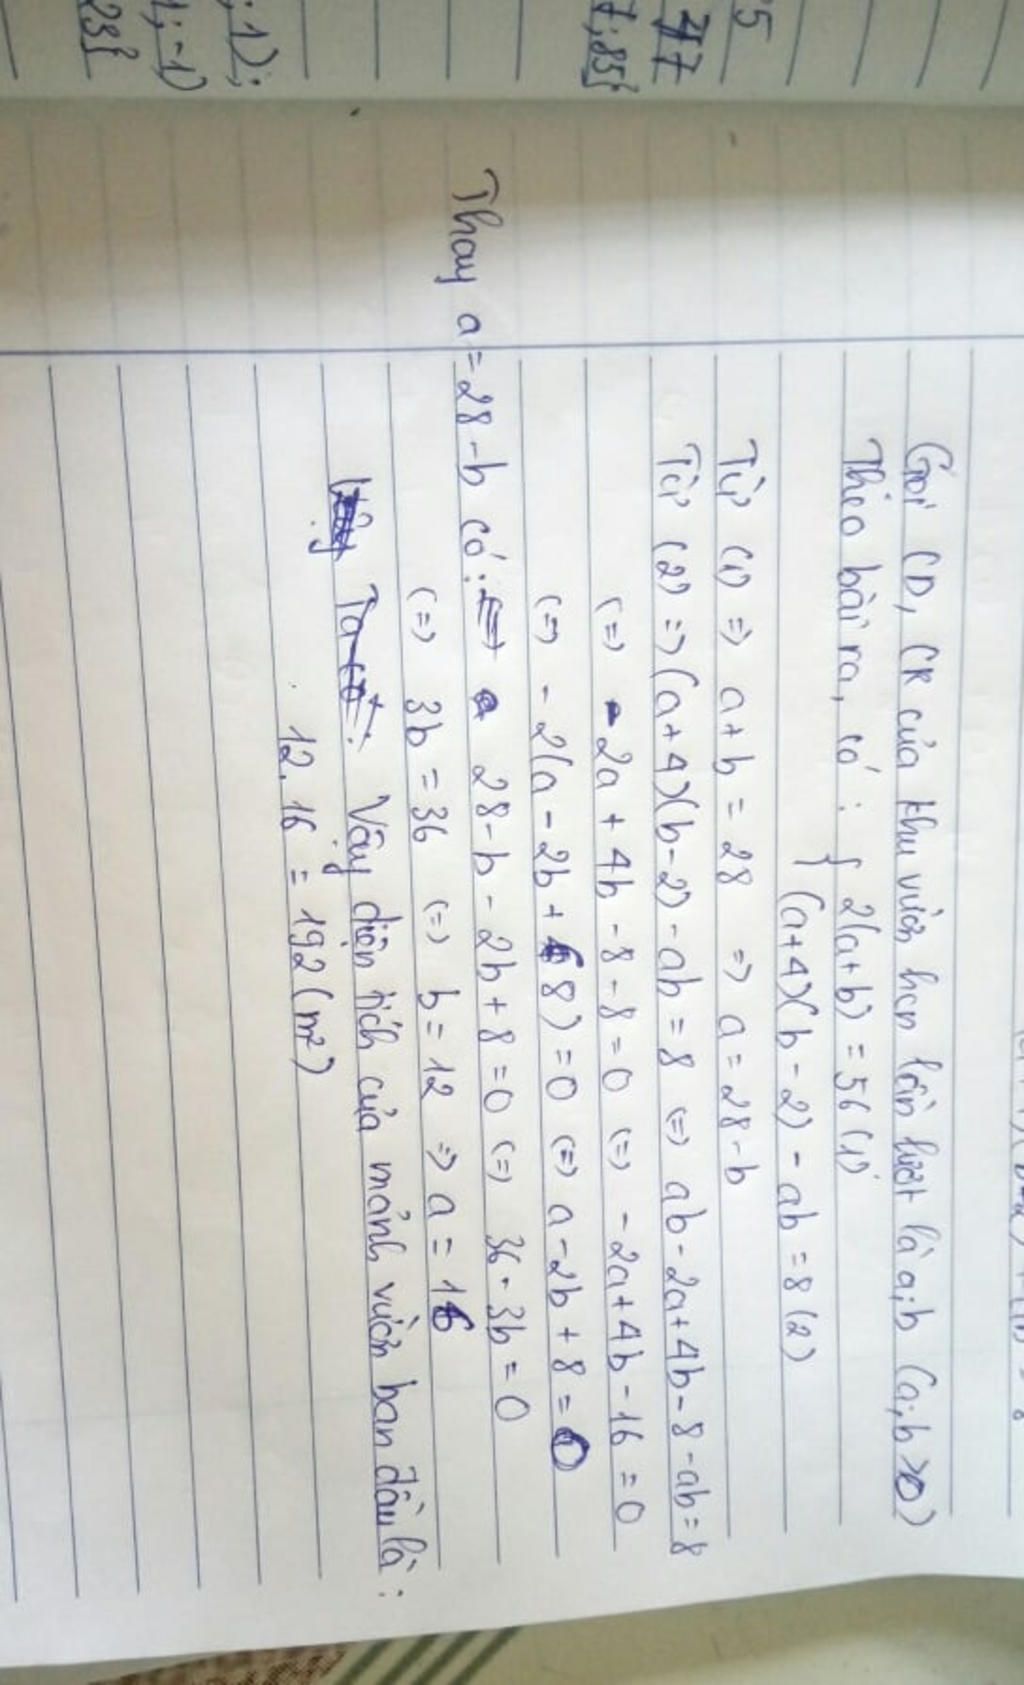 5
77
7; 85}
; 1);
1; -1)
23}
Gọi CD, CR của khu vườn hcn lần lượt là a; b (a; b > 0)
Theo bài ra, có : { 2(a+b) = 56 (1)
(a+4)(b-2) - ab = 8 (2)
Từ (1) => a+b = 28 => a = 28-b
Từ (2) => (a+4)(b-2) - ab = 8 (=) ab - 2a + 4b - 8 - ab = 8
(=) -2a + 4b - 8 - 8 = 0 (=) -2a + 4b - 16 = 0
(=) -2(a - 2b + 8) = 0 (=) a - 2b + 8 = 0
Thay a = 28 - b có: 28 - b - 2b + 8 = 0 (=) 36 - 3b = 0
(=) 3b = 36 (=) b = 12 => a = 16
Vậy diện tích của mảnh vườn ban đầu là :
12. 16 = 192 (m²)